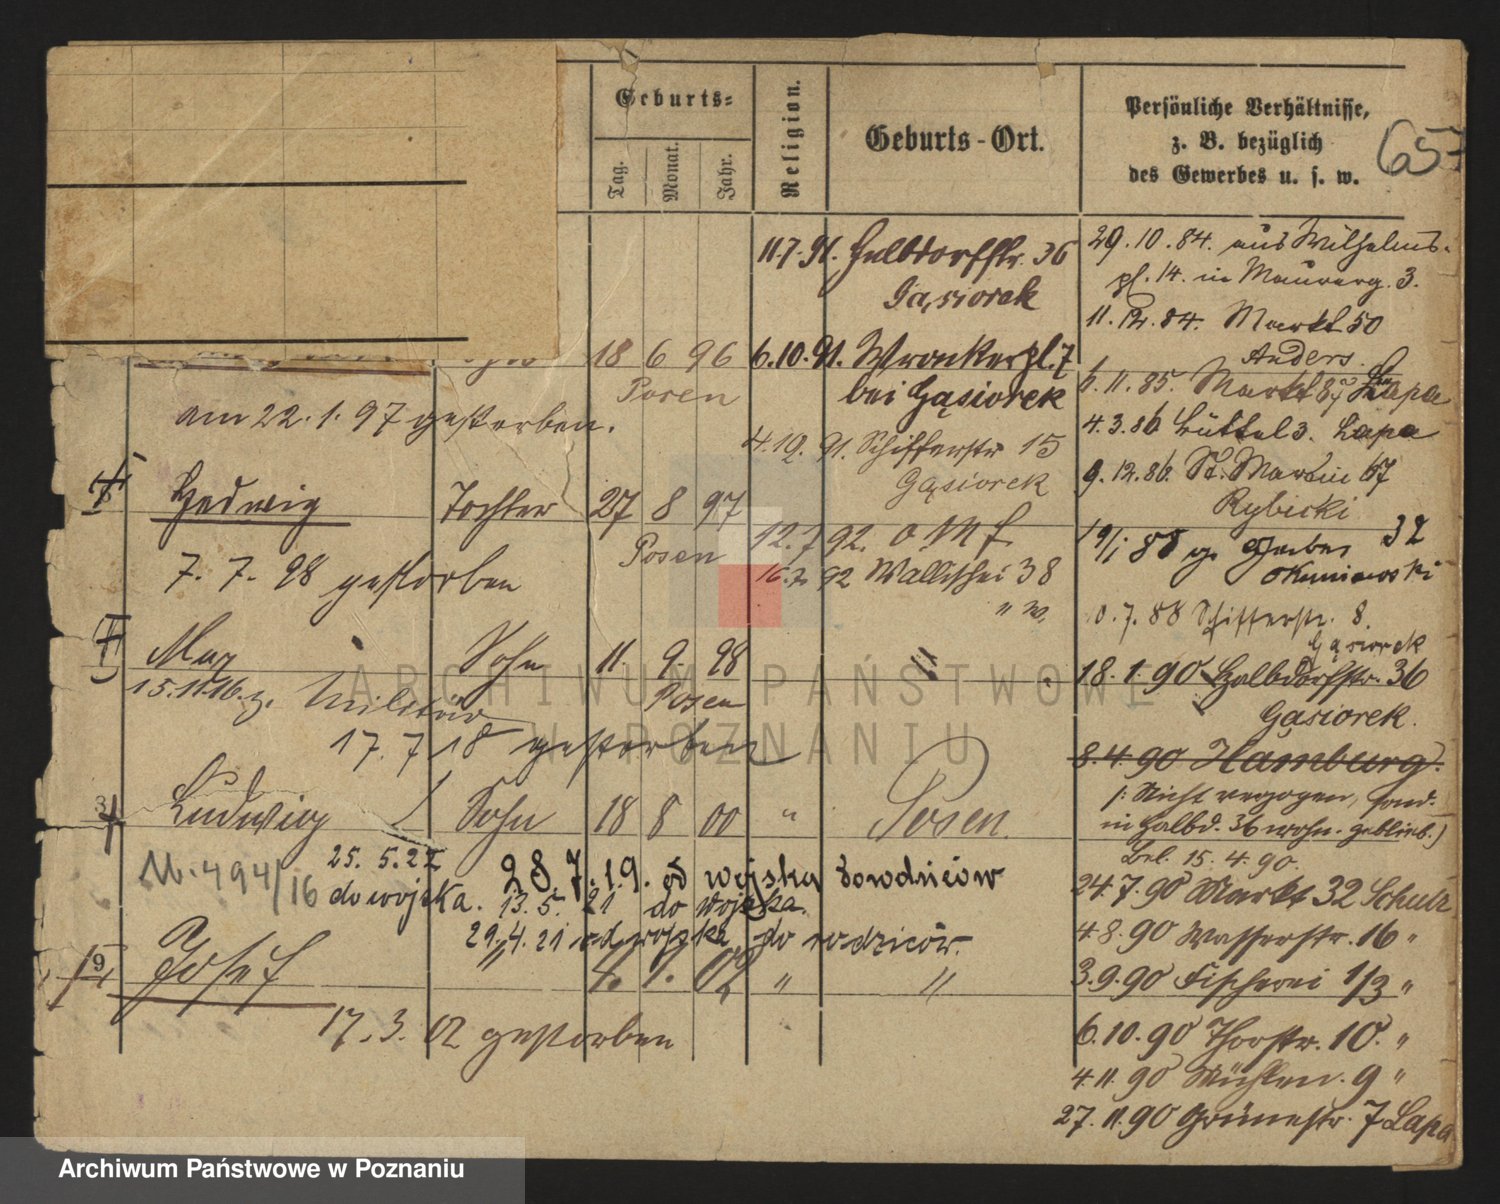 Geburts-
Tag.
Monat.
Jahr.
Religion.
Geburts-Ort.
Persönliche Verhältnisse,
z. B. bezüglich
des Gewerbes u. s. w.
65
18 6 96
Posen
am 22.1.97 gestorben.
Hedwig Tochter 27 8 97
Posen
7. 7. 98 gestorben
Max Sohn 11. 9. 98 "
Posen
15.11.16. z. Militär
17. 7. 18 gestorben
Ludwig Sohn 18 8 00 " Posen.
M. 494/16
25. 5. 22
do wojska.
28 7. 19. od wojska
13. 5. 21 do wojska.
29. 4. 21 od wojska do rodziców.
9
Josef 4. 1. 02 " "
17. 3. 02 gestorben
11.7.91. Halbdorfstr. 36
Gąsiorek
6.10.91. Wronkerpl. 7
bei Gąsiorek
91. Schifferstr 15
Gąsiorek
12. 7 92.
16.7. 92 Wallischei 38
29.10.84. aus Wilhelms-
pl. 14. in Mauerg. 3.
11.12.84. Markt 50
Anders.
6.11.85. Markt Lapa
4.3.86 Büttel 3. Lapa
9.12.86. St. Martin 67
Rybicki
88 Gerber 32
7. 88 Schifferstr. 8.
Gąsiorek
18. 1. 90 Halbdorfstr. 36
Gąsiorek.
8.4.90 Hamburg.
/: Nicht verzogen, sond.
in Halbd. 36 wohn. geblieb.)
Bel. 15. 4. 90.
24.7.90 Markt 32 Schulz
4.8.90 Wasserstr. 16 "
3.9.90 Fischerei 1/3 "
6.10.90 Thorstr. 10. "
4.11.90 Mühlen. 9 "
27.11.90 Grünestr. 7 Lapa
ARCHIWUM PAŃSTWOWE
W POZNANIU
Archiwum Państwowe w Poznaniu